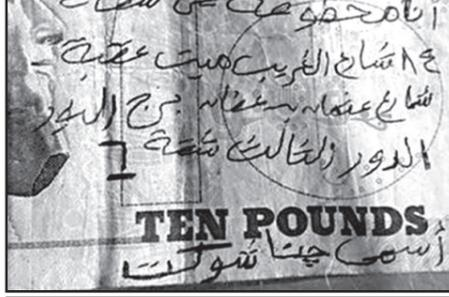 أنا مخطوفة في شقة
٤٨ شارع الغريب ميت عقبة
شارع عثمان بن عفان برج النور
الدور الثالث شقة ٦
TEN POUNDS
أسمى جينا شوكت